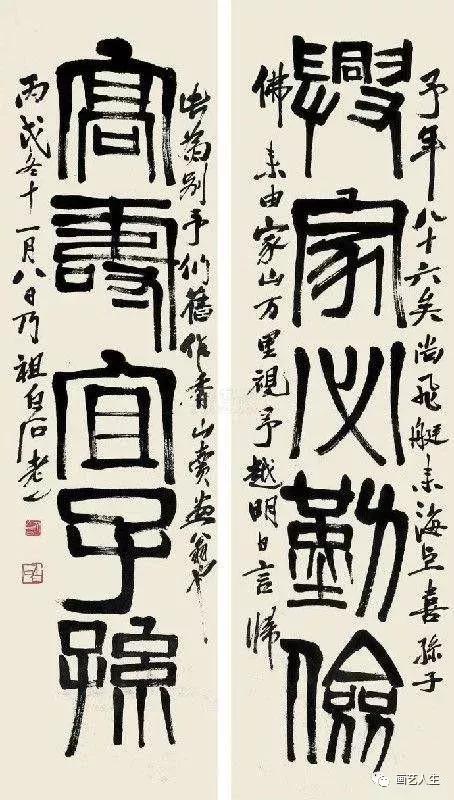 予年八十六矣尚飛艇来海上喜孫子
興家必勤儉
佛来由家山万里視予越明日言歸
别予們舊作香山賣翁也
高壽宜子孫
丙戌冬十一月八日乃祖白石老人
画艺人生